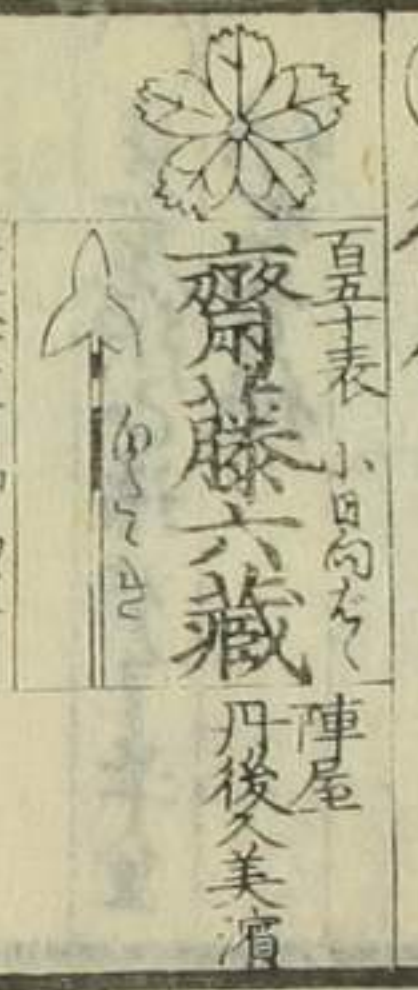 百五十表 小日向
齋藤六藏
陣屋
丹後久美濱